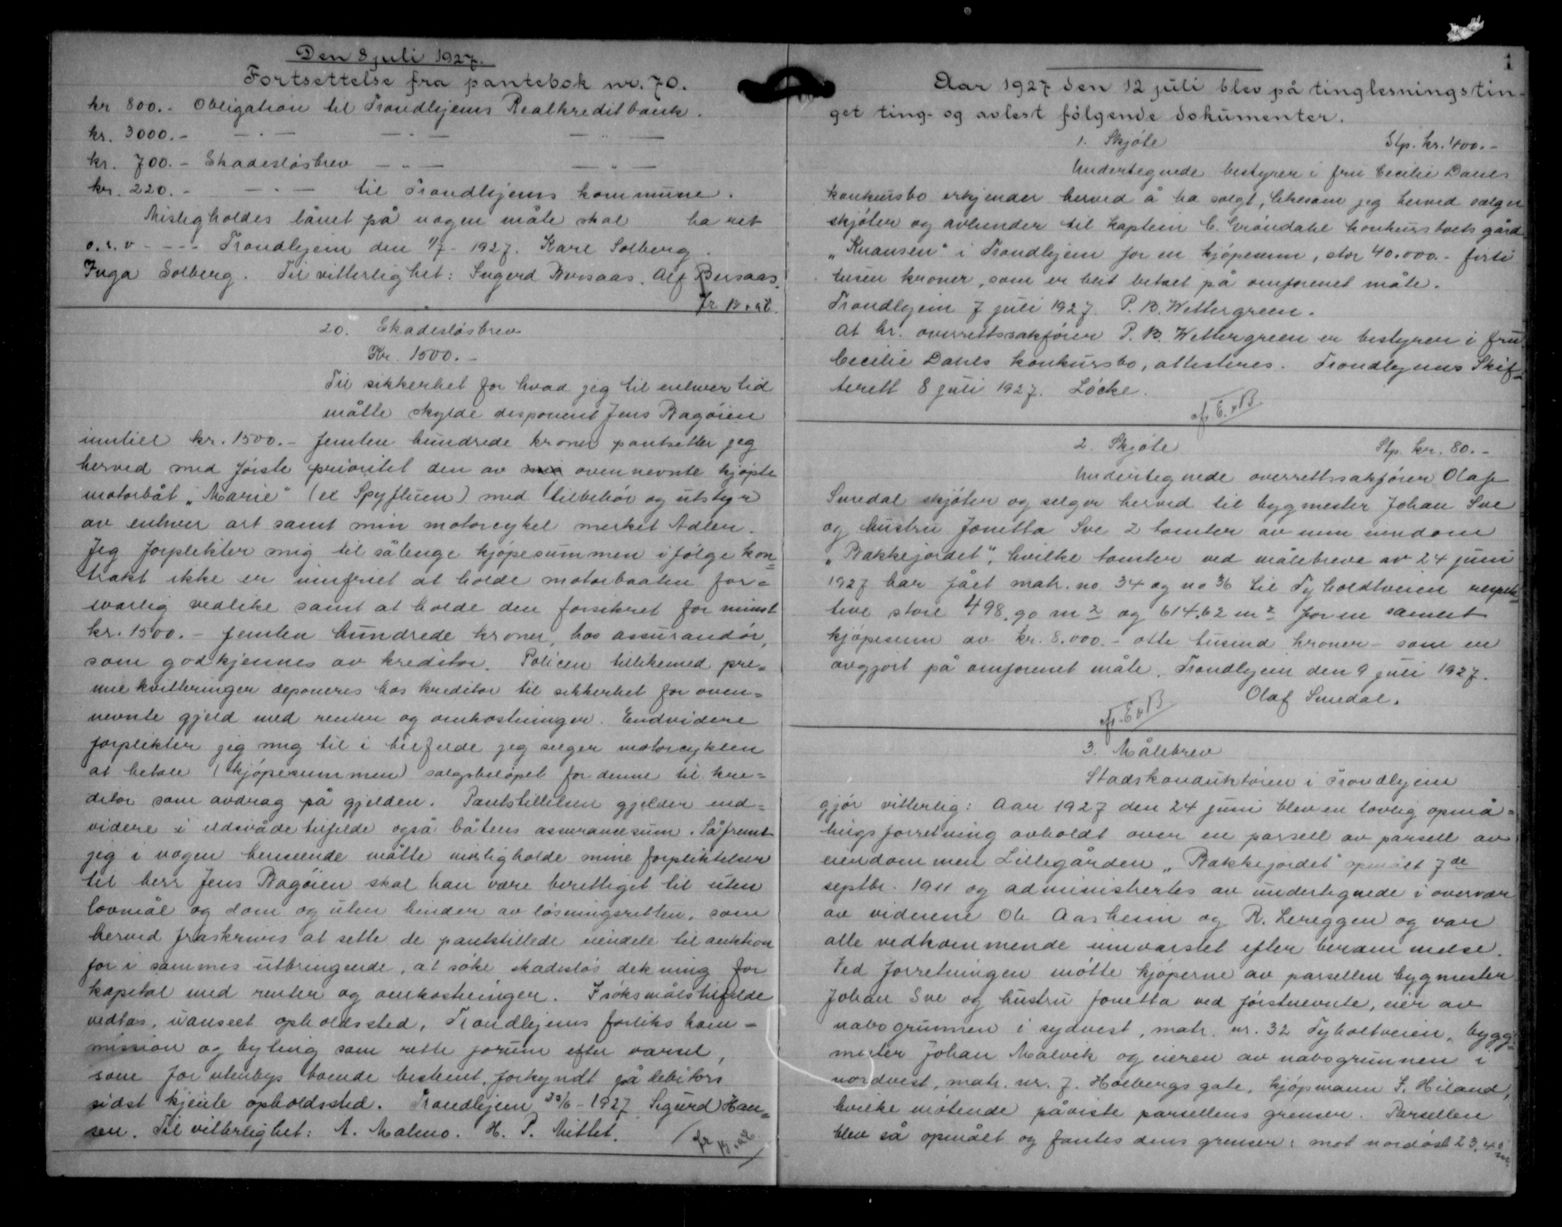 Den 8 juli 1927.
Fortsettelse fra pantebok nr. 70.
kr 800.- Obligation til Trondhjems Realkreditbank.
kr. 3000.- — · — — · — — · —
kr. 700.- Skadesløsbrev — · — — · —
kr. 220.- — · — til Trondhjems kommune.
Misligholdes lånet på nogen måte skal ha ret
o.s.v - - - Trondhjem den 1/7 - 1927. Karl Solberg.
Inga Solberg. Til vitterlighet: Sugerd Bersaas. Alf Bersaas.
20. Skadesløsbrev
Kr. 1500.-
Til sikkerhet for hvad jeg til enhver tid
måtte skylde disponent Jens Bagøien
inntill kr. 1500.- femten hundrede kroner pantsetter jeg
herved med første prioritet den av ovennevnte kjøpte
motorbåt „Marie" (ex Spyfluen) med tilbehør og utstyr
av enhver art samt min motorcykel merket Adler.
Jeg forplikter mig til sålenge kjøpesummen ifølge kon=
trakt ikke er innfriet at holde motorbaaten for=
svarlig vedlike samt at holde den forsikret for minst
kr. 1500.- femten hundrede kroner, hos assurandør,
som godkjennes av kreditor. Policen tillikemed pre=
miekvitteringer deponeres hos kreditor til sikkerhet for oven=
nevnte gjeld med renter og omkostninger. Endvidere
forplikter jeg mig til i tilfelde jeg selger motorcyklen
at betale (kjøpesummen) salgsbeløpet for denne til kre=
ditor som avdrag på gjelden. Pantstillelsen gjelder end=
videre i ildsvådetilfelde også båtens assuransesum. Såfremt
jeg i nogen henseende måtte misligholde mine forpliktelser
til herr Jens Bagøien skal han være berettiget til uten
lovmål og dom og uten hinder av løsningsretten, som
herved fraskrives at sette de pantstillede eiendele til auktion
for i sammes utbringende, at søke skadesløs dekning for
kapital med renter og omkostninger. I søksmålstilfelde
vedtas, uanseet opholdssted, Trondhjems forliks kom=
mission og byting som rette forum efter varsel,
som for utenbys boende bestemt, forkyndt på debitors
sidst kjente opholdssted. Trondhjem 23/6 - 1927 Sigurd Han=
sen. Til vitterlighet: A. Malmo. H. P. Mittet.
1
Aar 1927 den 12 juli blev på tinglesningstin-
get ting- og avlest følgende dokumenter.
1. Skjøte Stp. kr. 400.-
Undertegnede bestyrer i fru Cecilie Dahls
konkursbo erkjender herved å ha solgt, likesom jeg herved selger
skjøter og avhender til kaptein C. Grøndahl konkursboets gård
„Knausen" i Trondhjem for en kjøpesum, stor 40.000.- forti
tusen kroner, som er blit betalt på omforenet måte.
Trondhjem 7 juli 1927. P. B. Wettergreen.
At hr. overrettssakfører P. B. Wettergreen er bestyrer i fru
Cecilie Dahls konkursbo, attesteres. Trondhjems Skif=
terett 8 juli 1927. Löcke.
2. Skjøte Stp. kr. 80.-
Undertegnede overrettssakfører Olaf
Smedal skjøter og selger herved til bygmester Johan Sve
og hustru Jonetta Sve 2 tomter av min eiendom
„Bakkejordet", hvilke tomter ved målebreve av 24 juni
1927 har fått matr. no 34 og no 36 til Tyholdtveien respek-
tive store 498.90 m2 og 614.62 m2 for en samlet
kjøpesum av kr. 8.000.- otte tusend kroner - som en
avgjort på omforenet måte. Trondhjem den 9 juli 1927.
Olaf Smedal.
3. Målebrev
Stadskonduktøren i Trondhjem
gjør vitterlig: Aar 1927 den 24 juni blev en lovlig opmå=
lingsforretning avholdt over en parsell av parsell av
eiendommen Lillegården „Bakkejordet" opmålt 7de
septbr. 1911 og administrertes av undertegnede i overvær
av vidnene Ole Aasheim og R. Lereggen og var
alle vedkommende innvarslet efter berammelse.
Ved forretningen møtte kjøperne av parsellen bygmester
Johan Sve og hustru Jonetta ved førstnevnte, eier av
nabogrunnen i sydvest, matr. nr. 32 Tyholtveien, bygg=
mester Johan Malvik og eieren av nabogrunnen i
nordvest, matr. nr. 7. Holbergs gate, kjøpmann S. Hiland,
hvilke møtende påviste parsellens grenser. Parsellen
blev så opmålt og fantes dens grenser: mot nordøst 23,40 m.